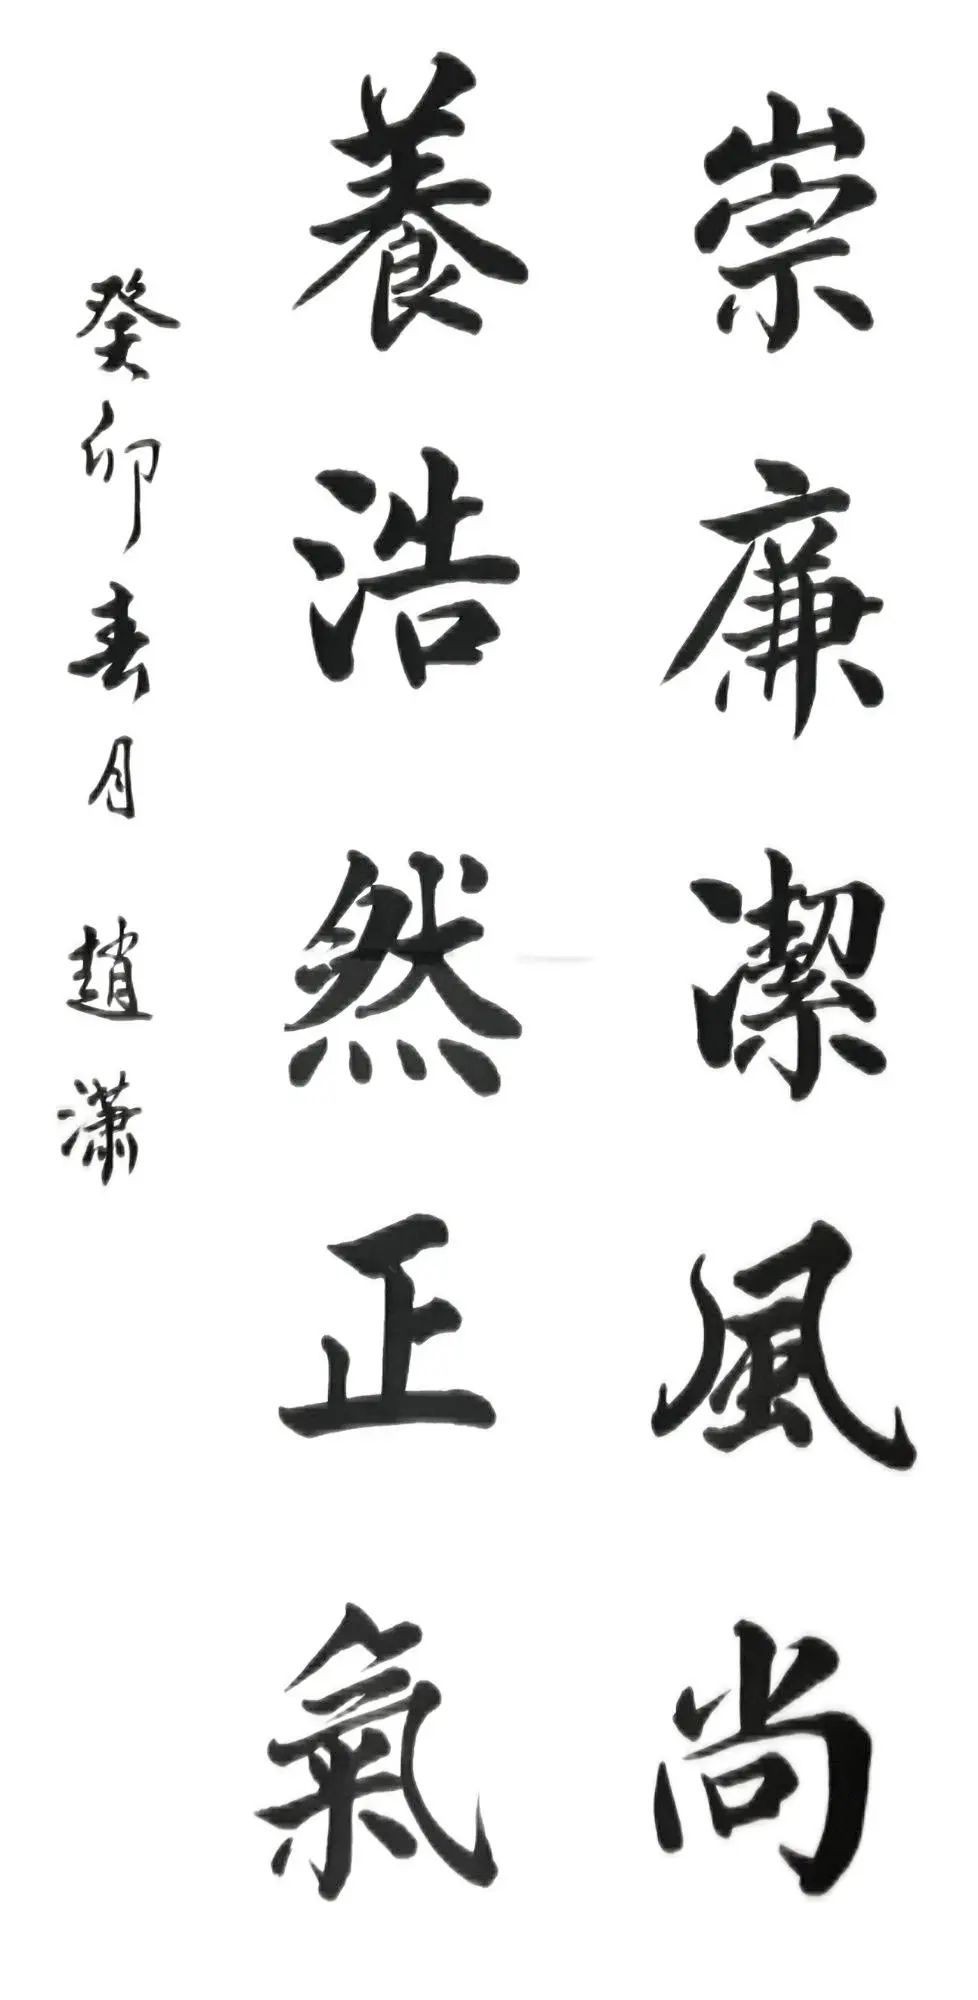 崇廉潔風尚
養浩然正氣
癸卯春月 趙瀟